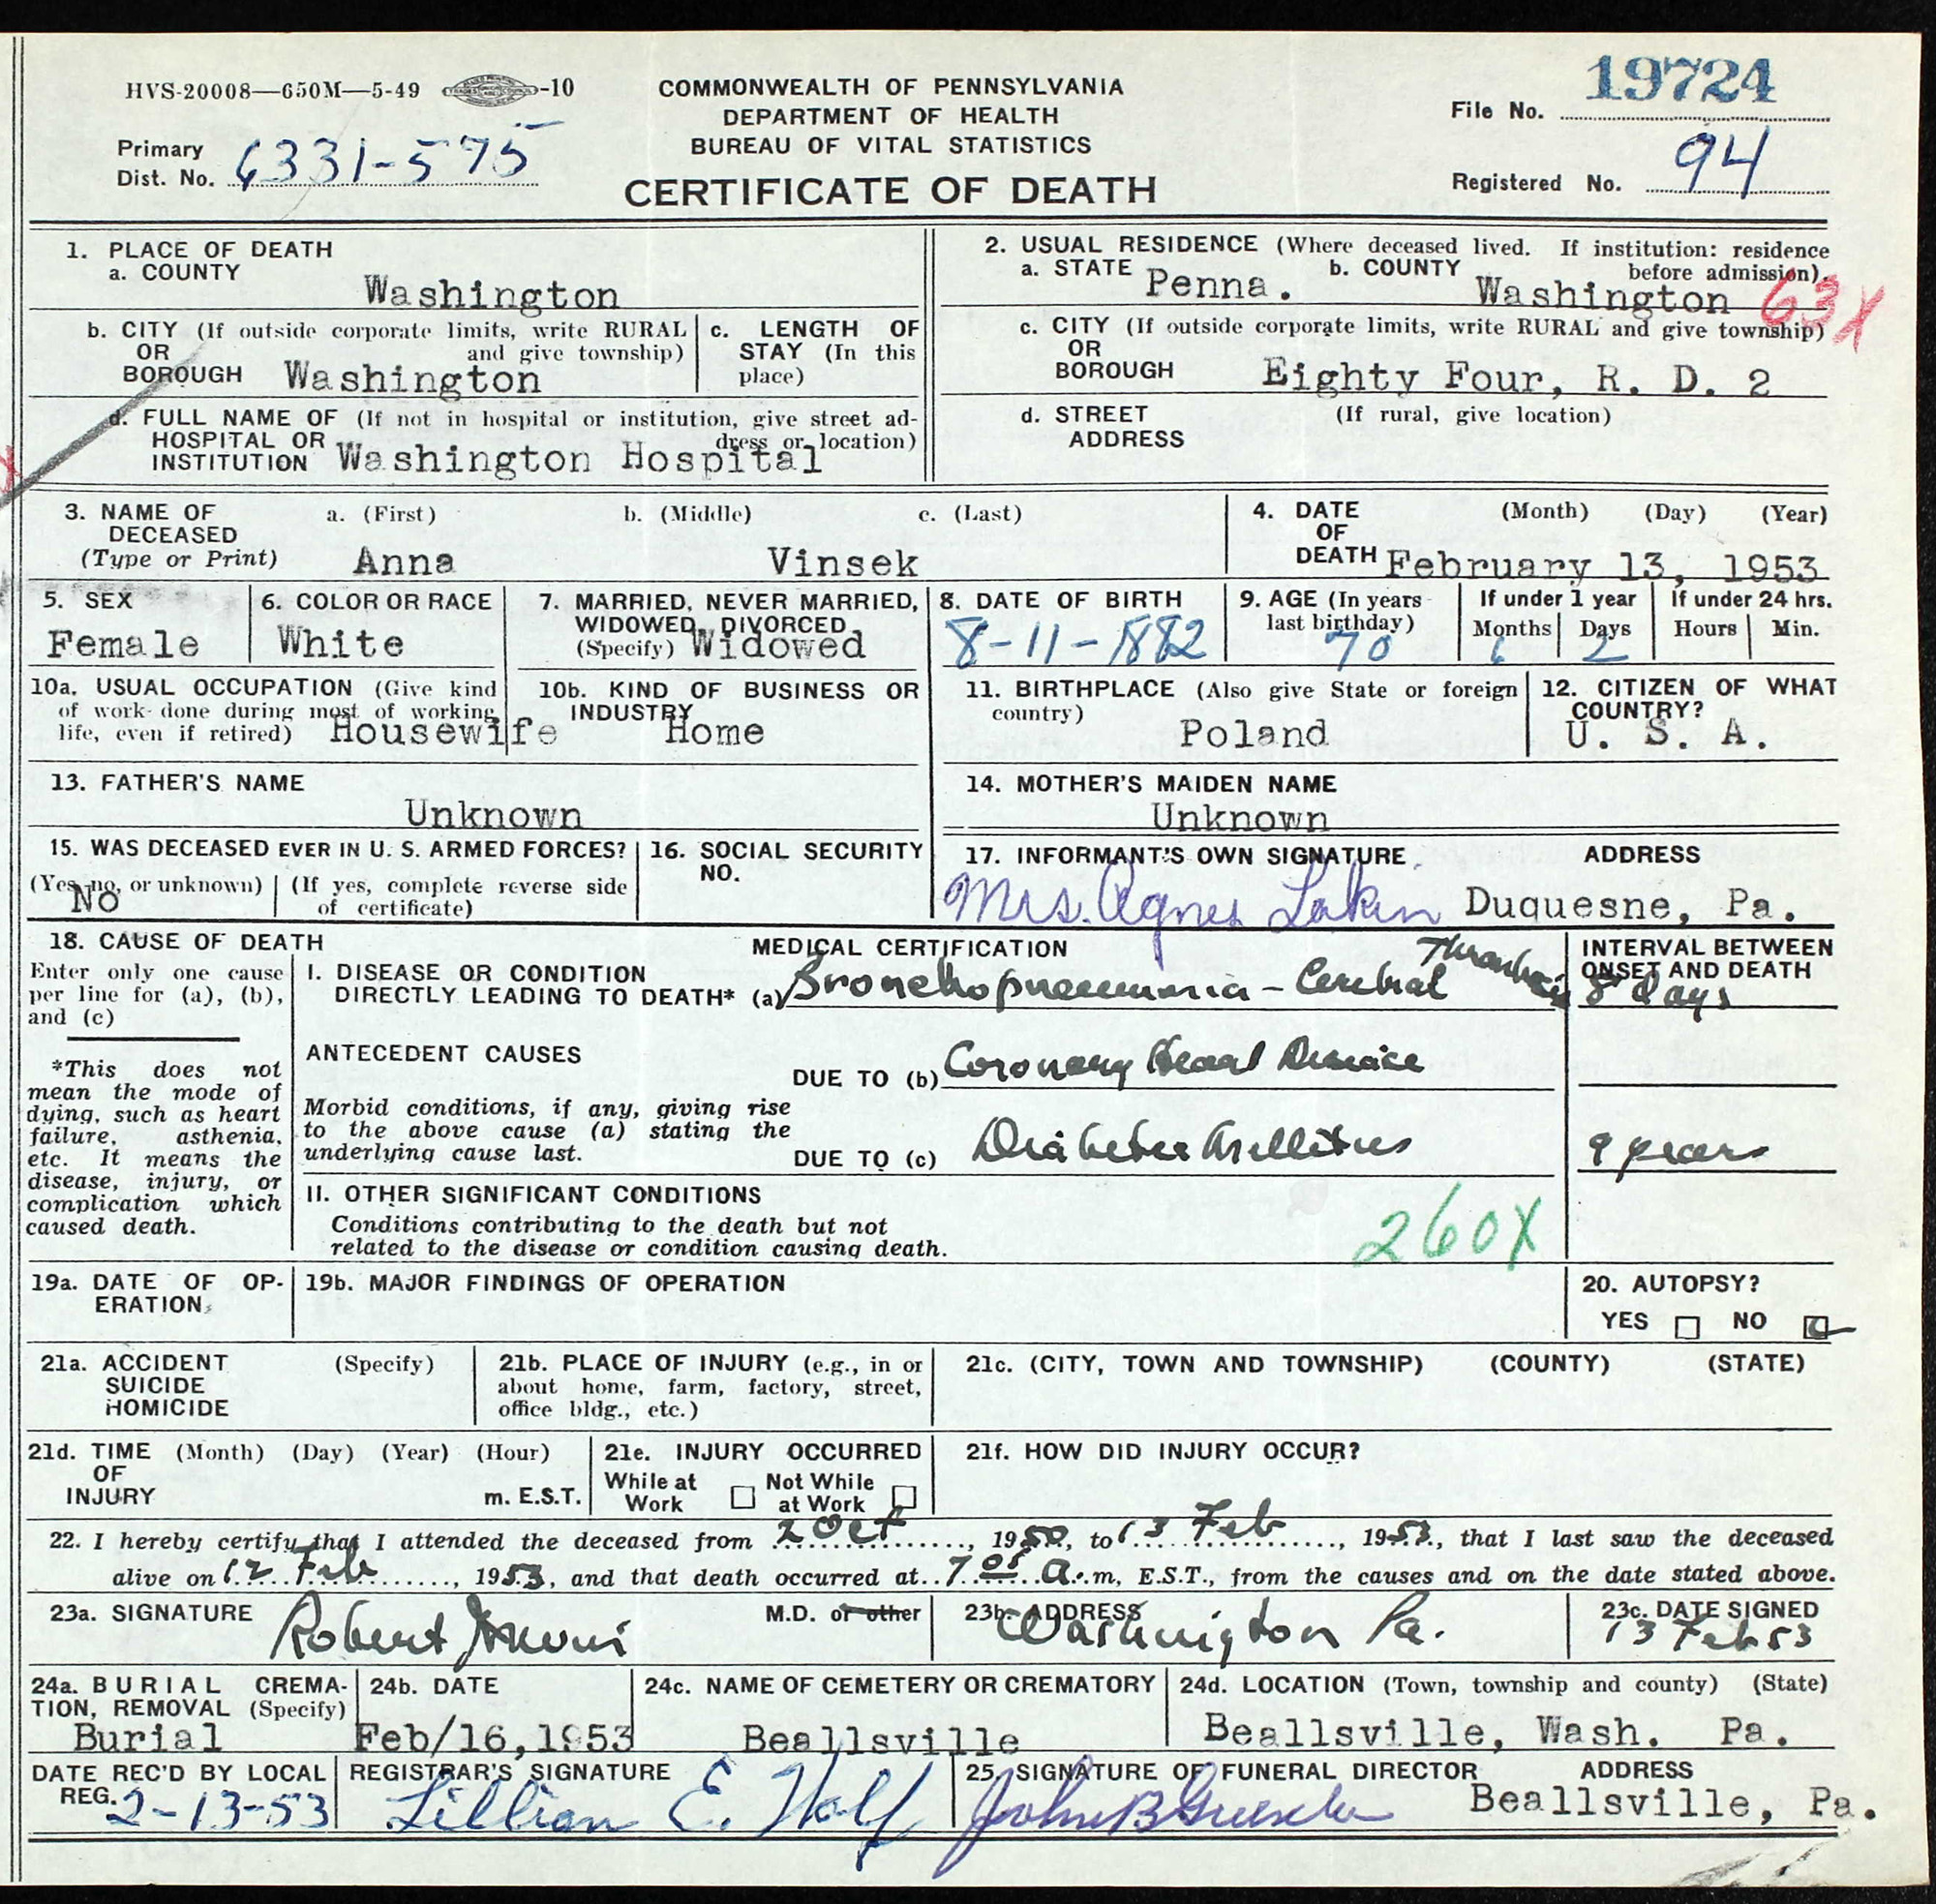 HVS-20008—650M—5-49 -10
COMMONWEALTH OF PENNSYLVANIA
DEPARTMENT OF HEALTH
BUREAU OF VITAL STATISTICS
CERTIFICATE OF DEATH
Primary Dist. No. 6331-575
File No. 19724
Registered No. 94
1. PLACE OF DEATH
a. COUNTY
Washington
b. CITY (If outside corporate limits, write RURAL
OR and give township)
BOROUGH Washington
c. LENGTH OF
STAY (In this
place)
d. FULL NAME OF (If not in hospital or institution, give street ad-
HOSPITAL OR dress or location)
INSTITUTION Washington Hospital
2. USUAL RESIDENCE (Where deceased lived. If institution: residence
a. STATE Penna. b. COUNTY before admission).
Washington 63X
c. CITY (If outside corporate limits, write RURAL and give township)
OR
BOROUGH Eighty Four, R. D. 2
d. STREET (If rural, give location)
ADDRESS
3. NAME OF a. (First) b. (Middle) c. (Last)
DECEASED
(Type or Print) Anna Vinsek
4. DATE (Month) (Day) (Year)
OF
DEATH February 13, 1953
5. SEX
Female
6. COLOR OR RACE
White
7. MARRIED, NEVER MARRIED,
WIDOWED, DIVORCED
(Specify) Widowed
8. DATE OF BIRTH
8-11-1882
9. AGE (In years
last birthday)
70
If under 1 year
Months Days
6 2
If under 24 hrs.
Hours Min.
10a. USUAL OCCUPATION (Give kind
of work done during most of working
life, even if retired) Housewife
10b. KIND OF BUSINESS OR
INDUSTRY
Home
11. BIRTHPLACE (Also give State or foreign
country)
Poland
12. CITIZEN OF WHAT
COUNTRY?
U. S. A.
13. FATHER'S NAME
Unknown
14. MOTHER'S MAIDEN NAME
Unknown
15. WAS DECEASED EVER IN U. S. ARMED FORCES?
(Yes, no, or unknown) (If yes, complete reverse side
No of certificate)
16. SOCIAL SECURITY
NO.
17. INFORMANT'S OWN SIGNATURE ADDRESS
Mrs. Agnes Lakin Duquesne, Pa.
18. CAUSE OF DEATH
Enter only one cause
per line for (a), (b),
and (c)
*This does not
mean the mode of
dying, such as heart
failure, asthenia,
etc. It means the
disease, injury, or
complication which
caused death.
MEDICAL CERTIFICATION
I. DISEASE OR CONDITION
DIRECTLY LEADING TO DEATH* (a) Bronchopneumonia - Cerebral Thrombosis
ANTECEDENT CAUSES
DUE TO (b) Coronary Heart Disease
Morbid conditions, if any, giving rise
to the above cause (a) stating the
underlying cause last.
DUE TO (c) Diabetes Mellitus
II. OTHER SIGNIFICANT CONDITIONS
Conditions contributing to the death but not
related to the disease or condition causing death.
260X
INTERVAL BETWEEN
ONSET AND DEATH
8 Days
9 years
19a. DATE OF OP-
ERATION
19b. MAJOR FINDINGS OF OPERATION
20. AUTOPSY?
YES NO
21a. ACCIDENT (Specify)
SUICIDE
HOMICIDE
21b. PLACE OF INJURY (e.g., in or
about home, farm, factory, street,
office bldg., etc.)
21c. (CITY, TOWN AND TOWNSHIP) (COUNTY) (STATE)
21d. TIME (Month) (Day) (Year) (Hour)
OF
INJURY m. E.S.T.
21e. INJURY OCCURRED
While at Work Not While at Work
21f. HOW DID INJURY OCCUR?
22. I hereby certify that I attended the deceased from 2 Oct, 1950, to 13 Feb, 1953, that I last saw the deceased
alive on 12 Feb, 1953, and that death occurred at 7 05 a.m, E.S.T., from the causes and on the date stated above.
23a. SIGNATURE M.D. or other
Robert
23b. ADDRESS
Washington Pa.
23c. DATE SIGNED
13 Feb 53
24a. BURIAL CREMA-
TION, REMOVAL (Specify)
Burial
24b. DATE
Feb/16,1953
24c. NAME OF CEMETERY OR CREMATORY
Beallsville
24d. LOCATION (Town, township and county) (State)
Beallsville, Wash. Pa.
DATE REC'D BY LOCAL
REG. 2-13-53
REGISTRAR'S SIGNATURE
Lillian E. Wolf
25. SIGNATURE OF FUNERAL DIRECTOR ADDRESS
John B Beallsville, Pa.